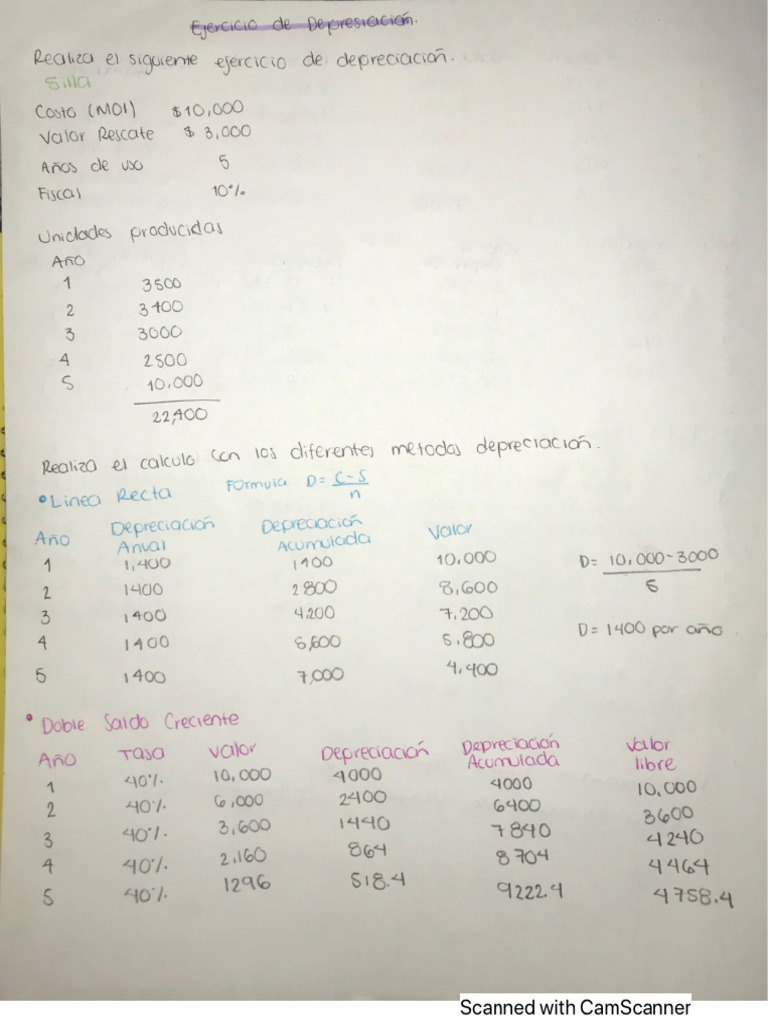 Ejercicio de Depresiación.
Realiza el siguiente ejercicio de depreciación.
Silla
Costo (MOI) $10,000
Valor Rescate $ 3,000
Años de uso 5
Fiscal 10%
Unidades producidas
Año
1 3500
2 3400
3 3000
4 2500
5 10,000
22,400
Realiza el calculo con los diferentes metodos depreciación.
• Linea Recta Formula D= C-S
n
Año Depreciación Anual Depreciación Acumulada Valor
1 1,400 1400 10,000 D= 10,000-3000
5
2 1400 2800 8,600
3 1400 4200 7,200 D= 1400 por año
4 1400 5,600 5.800
5 1400 7,000 4.400
• Doble Saldo Creciente
Año Tasa Valor Depreciación Depreciación Acumulada Valor libre
1 40% 10,000 4000 4000 10,000
2 40% 6,000 2400 6400 3600
3 40% 3,600 1440 7840 4240
4 40% 2,160 864 8704 4464
5 40% 1296 518.4 9222.4 4758.4
Scanned with CamScanner